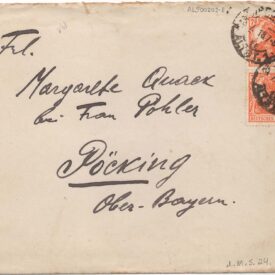 AL500202-2
Frl.
Margarethe Quack
bei Frau Pohler
Pöcking
Ober-Bayern.
L.M.S. 24.